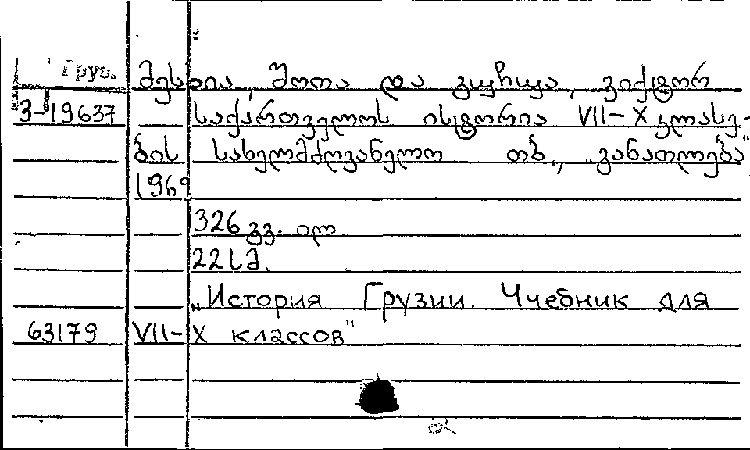 Груз. მესხია, შოთა და გუჩუა, ვიქტორ
3-19637 საქართველოს ისტორია VII-X კლასე-
ბის სახელმძღვანელო თბ., „განათლება",
1969
326 გვ. ილ.
22 სმ.
„История Грузии. Учебник для
63179 VII-X классов"